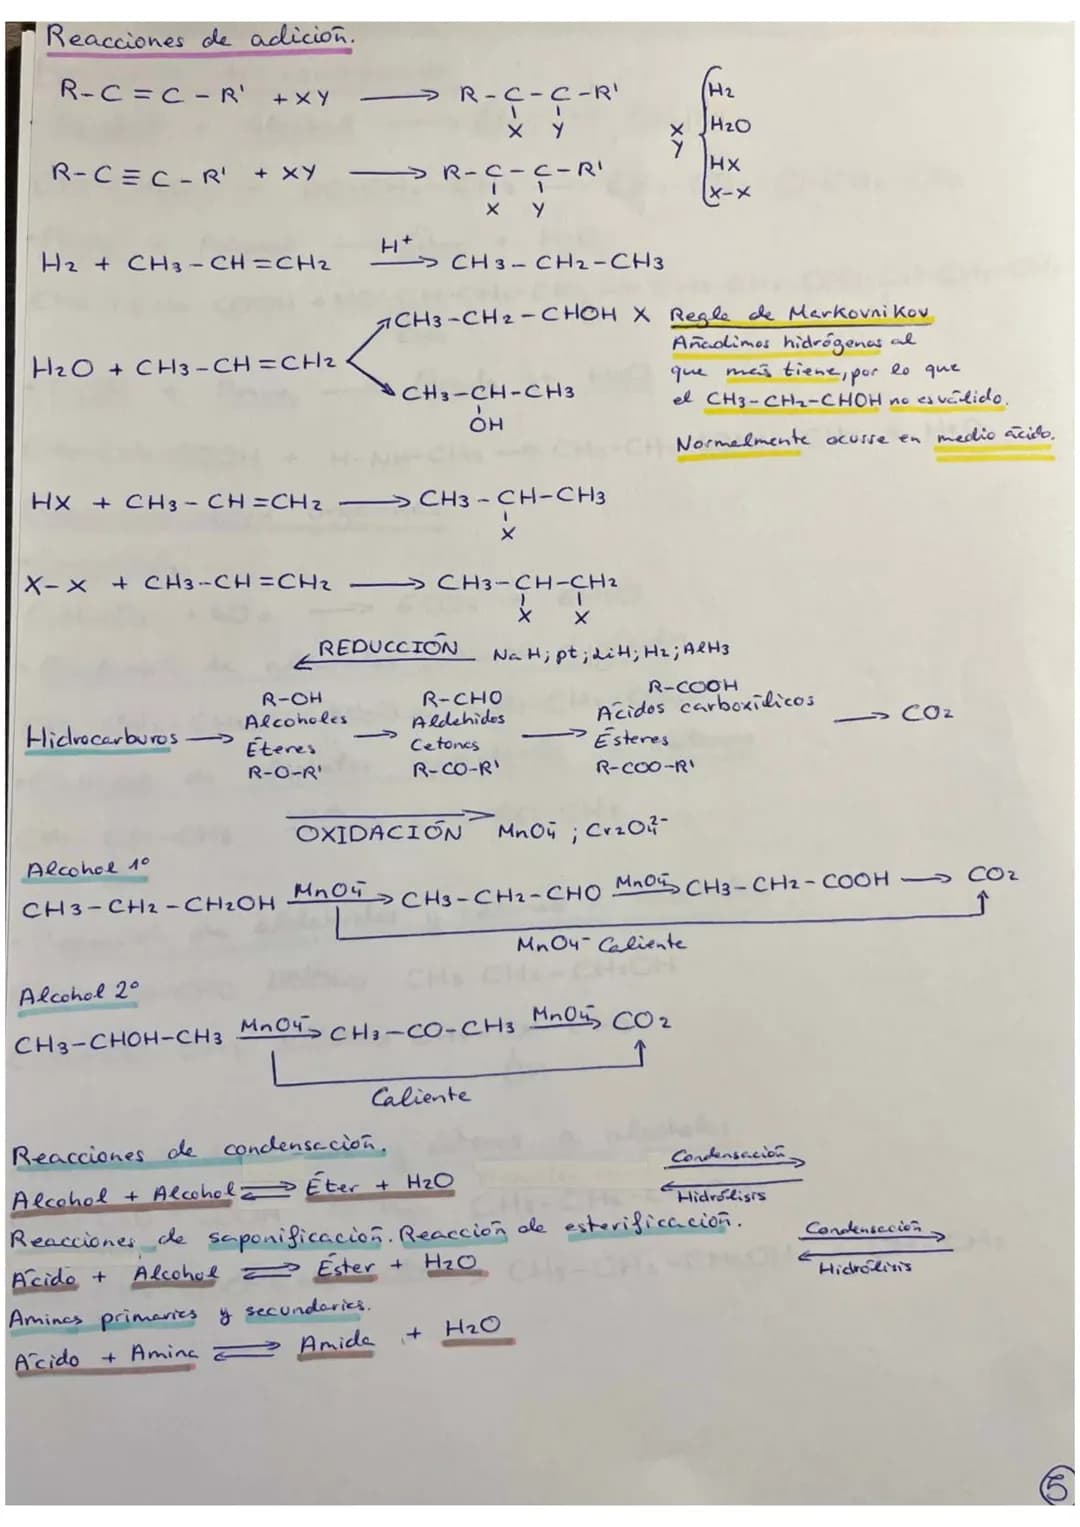 Reacciones de adición.
R-C=C-R' + XY ⟶ R-C-C-R'
X Y
XY { H2
H2O
HX
X-X
R-C≡C-R' + XY ⟶ R-C-C-R'
X Y
H2 + CH3-CH=CH2 H+⟶ CH3-CH2-CH3
H2O + CH3-CH=CH2
CH3-CH2-CHOH X
CH3-CH-CH3
OH
Regla de Markovnikov
Añadimos hidrógenos al
que más tiene, por lo que
el CH3-CH2-CHOH no es válido.
Normalmente ocurre en medio ácido.
HX + CH3-CH=CH2 ⟶ CH3-CH-CH3
X
X-X + CH3-CH=CH2 ⟶ CH3-CH-CH2
X X
REDUCCIÓN NaH; pt; LiH; H2; AlH3
Hidrocarburos ⟶
R-OH
Alcoholes
Éteres
R-O-R'
⟶
R-CHO
Aldehidos
Cetonas
R-CO-R'
⟶
R-COOH
Ácidos carboxílicos
Ésteres
R-COO-R'
⟶ CO2
OXIDACIÓN MnO4-; Cr2O4 2-
Alcohol 1º
CH3-CH2-CH2OH MnO4-⟶ CH3-CH2-CHO MnO4-⟶ CH3-CH2-COOH ⟶ CO2
MnO4- Caliente
Alcohol 2º
CH3-CHOH-CH3 MnO4-⟶ CH3-CO-CH3 MnO4-⟶ CO2
Caliente
Reacciones de condensación.
Alcohol + Alcohol ⇌ Éter + H2O
Condensación
Hidrólisis
Reacciones de saponificación. Reacción de esterificación.
Ácido + Alcohol ⇌ Éster + H2O
Condensación
Hidrólisis
Aminas primarias y secundarias.
Ácido + Amina ⇌ Amida + H2O
5